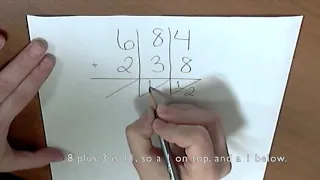 6 8 4
+ 2 3 8
1 1 2
8 plus 3 is 11, so a 1 on top, and a 1 below.